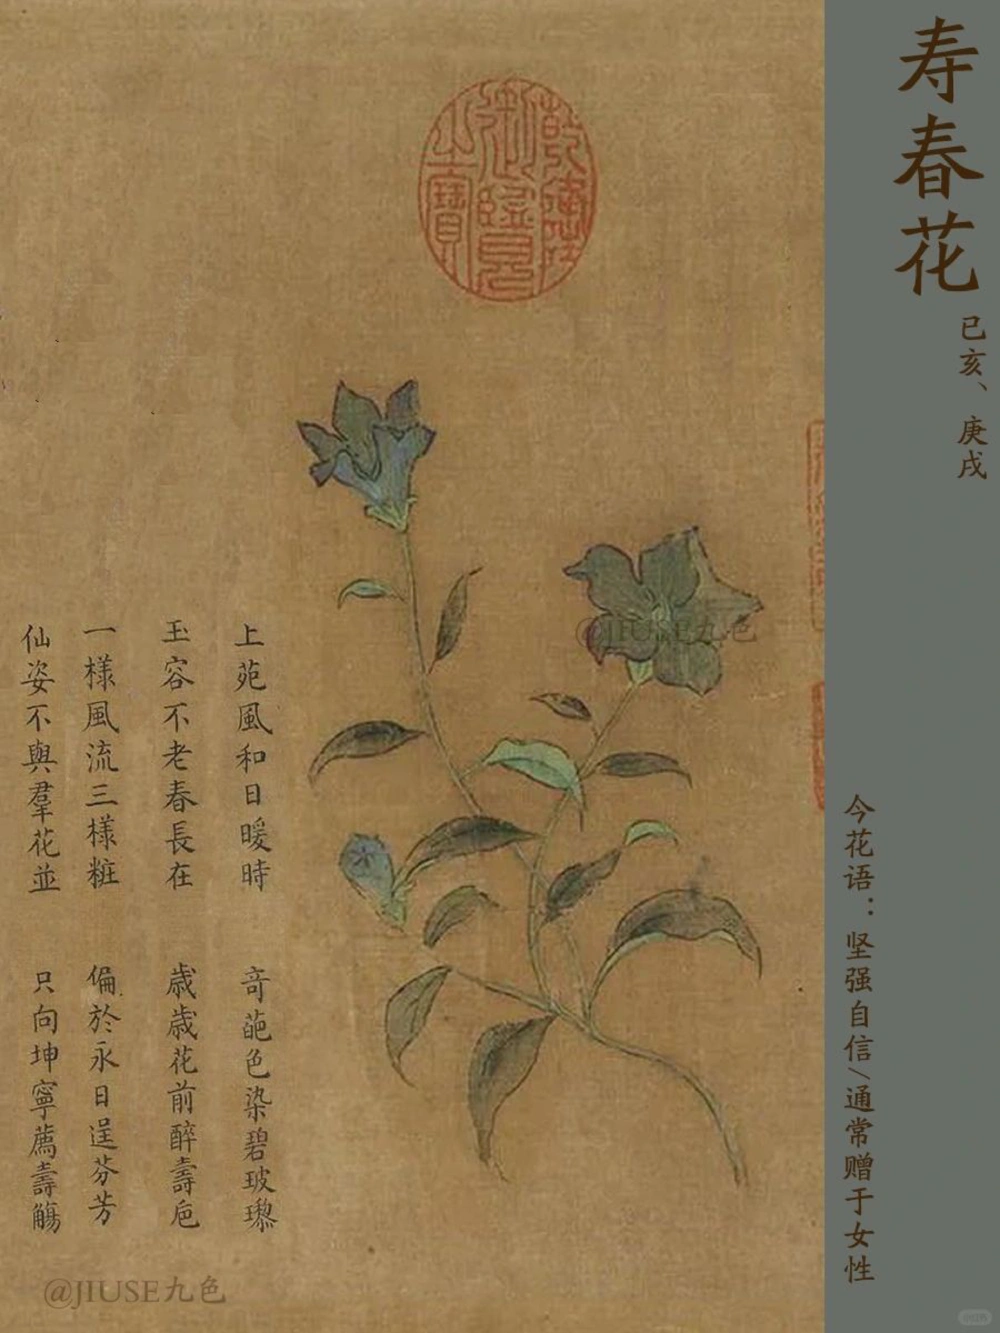 寿春花
己亥、庚戌
今花语：坚强自信/通常赠于女性
乾隆御覽之寶
上苑風和日暖時 奇葩色染碧玻瓈
玉容不老春長在 歲歲花前醉壽卮
一樣風流三樣粧 偏於永日逞芬芳
仙姿不與羣花並 只向坤寧薦壽觴
@JIUSE九色
@JIUSE九色